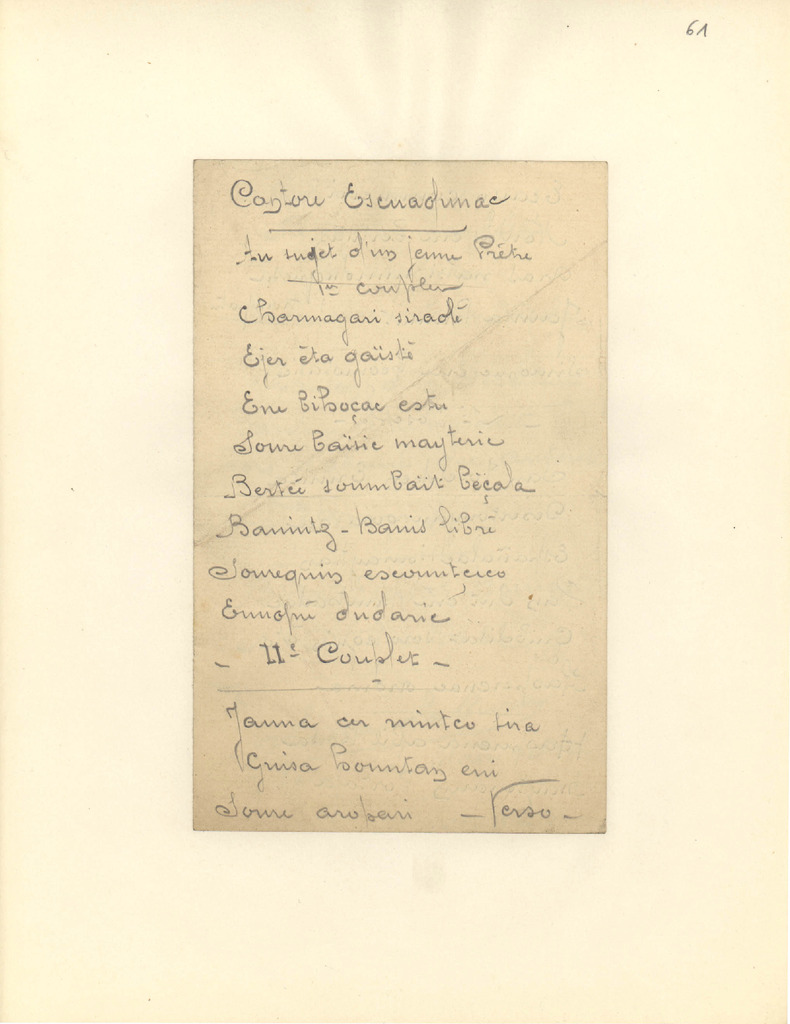 61
Cantore Escuadunac
Au sujet d'un jeune Prêtre
1er couplet
Charmagari siradé
Ejer éta gaïsté
Ene bihoçac estu
Soure baïsic mayteric
Bertcé soumbaït béçala
Banintz - Banis libré
Sourequin escountceco
Ennopré dudaric
- IIe Couplet -
Jauna cer mintco tira
Guisa hountan eni
Soure aropari - Verso -